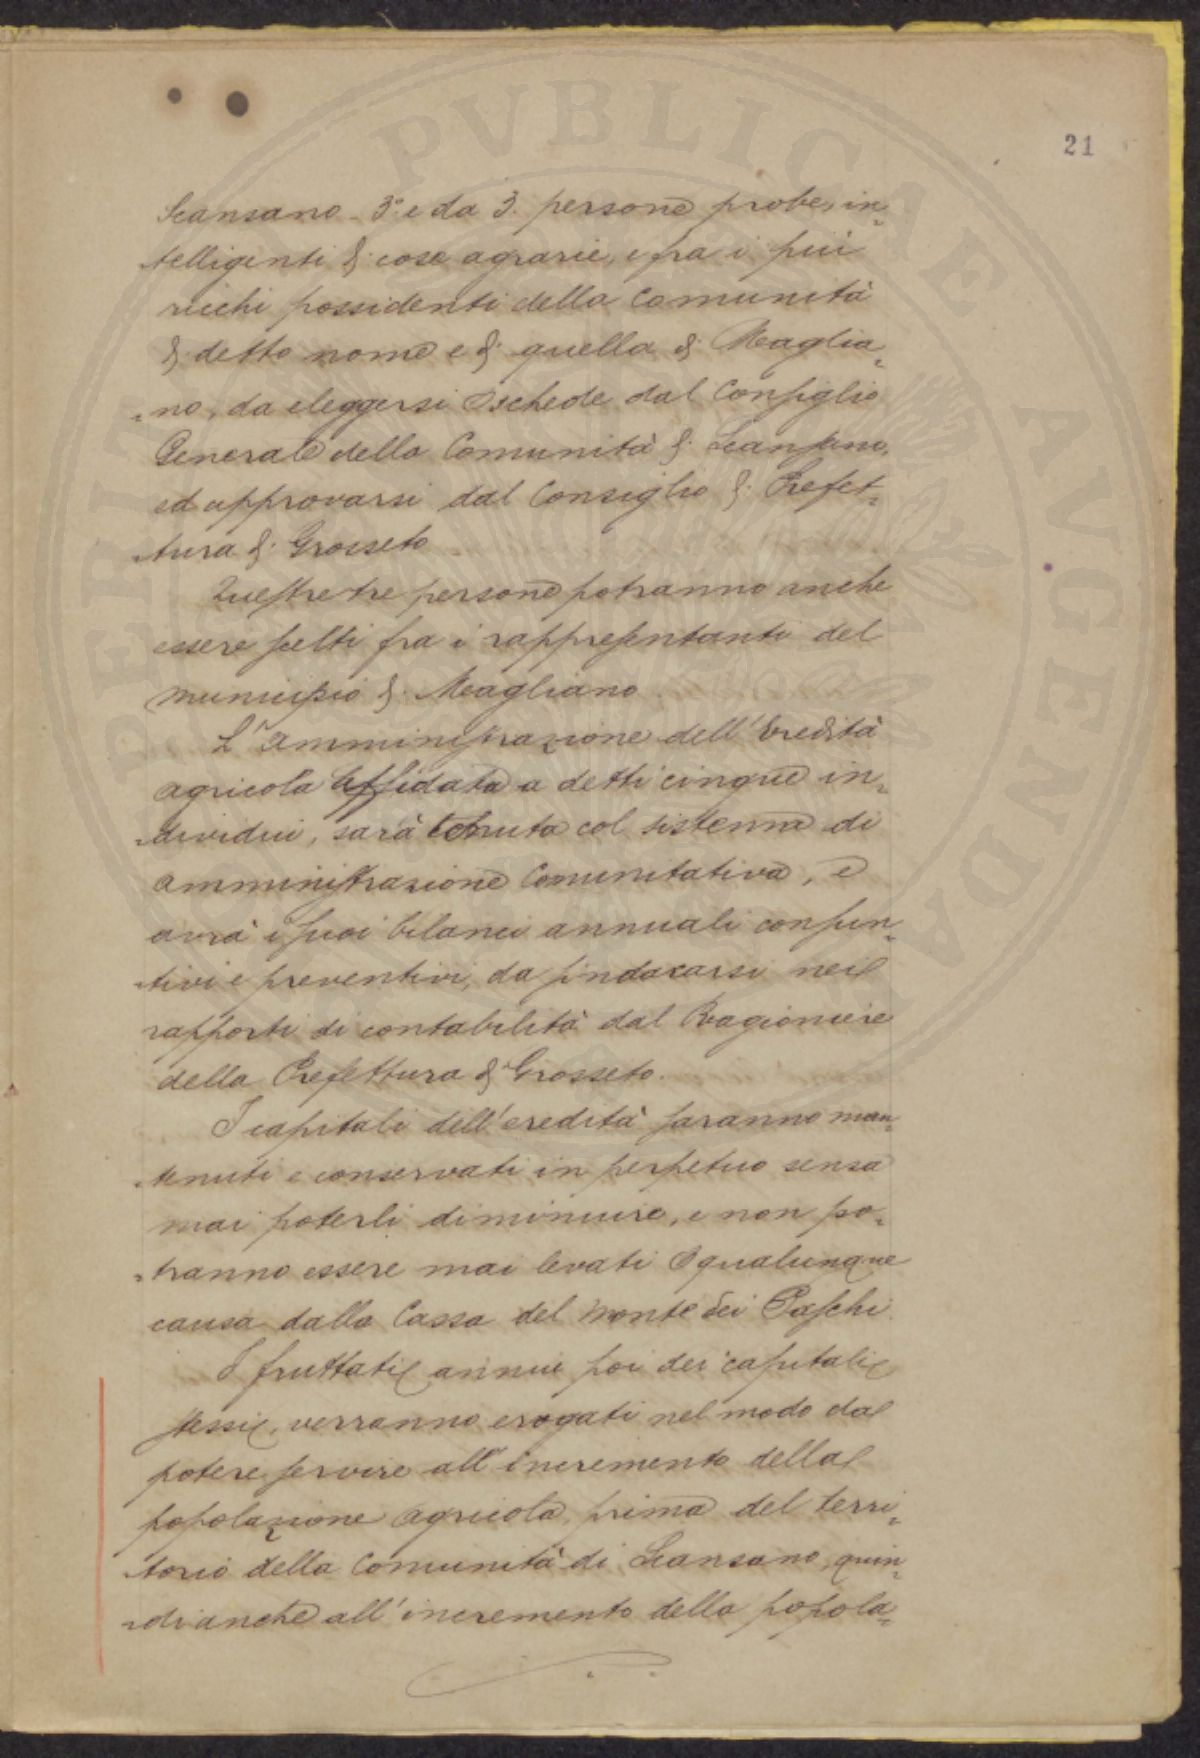 21
Scansano 3.° e da 3. persone probe, in=
telligenti di cose agrarie, e fra i più
ricchi possidenti della Comunità
di detto nome e di quella di Maglia=
=no, da eleggersi a schede dal Consiglio
Generale della Comunità di Scansano,
ed approvarsi dal Consiglio di Prefet=
=tura di Grosseto
Queste tre persone potranno anche
essere scelti fra i rappresentanti del
municipio di Magliano.
L'amministrazione dell'Eredità
agricola affidata a detti cinque in=
=dividui, sarà tenuta col sistema di
amministrazione Comunitativa, e
avrà i suoi bilanci annuali consun=
=tivi e preventivi, da sindacarsi nei
rapporti di contabilità dal Ragioniere
della Prefettura di Grosseto.
I capitali dell'eredità saranno man=
=tenuti e conservati in perpetuo senza
mai poterli diminuire, e non po=
=tranno essere mai levati p qualunque
causa dalla Cassa del Monte dei Paschi.
I fruttati annui poi dei capitali
stessi, verranno erogati nel modo da
potere servire all'incremento della
popolazione agricola, prima del terri=
torio della Comunità di Scansano, quin=
=di anche all'incremento della popola=
PVBLICAE AVGENDA